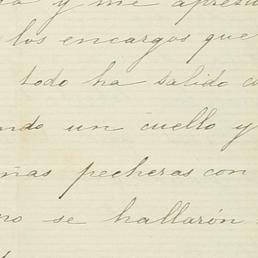 y me apresu
los encargos que
todo ha salido co
ndo un cuello y
ñas pecheras con
no se hallarón